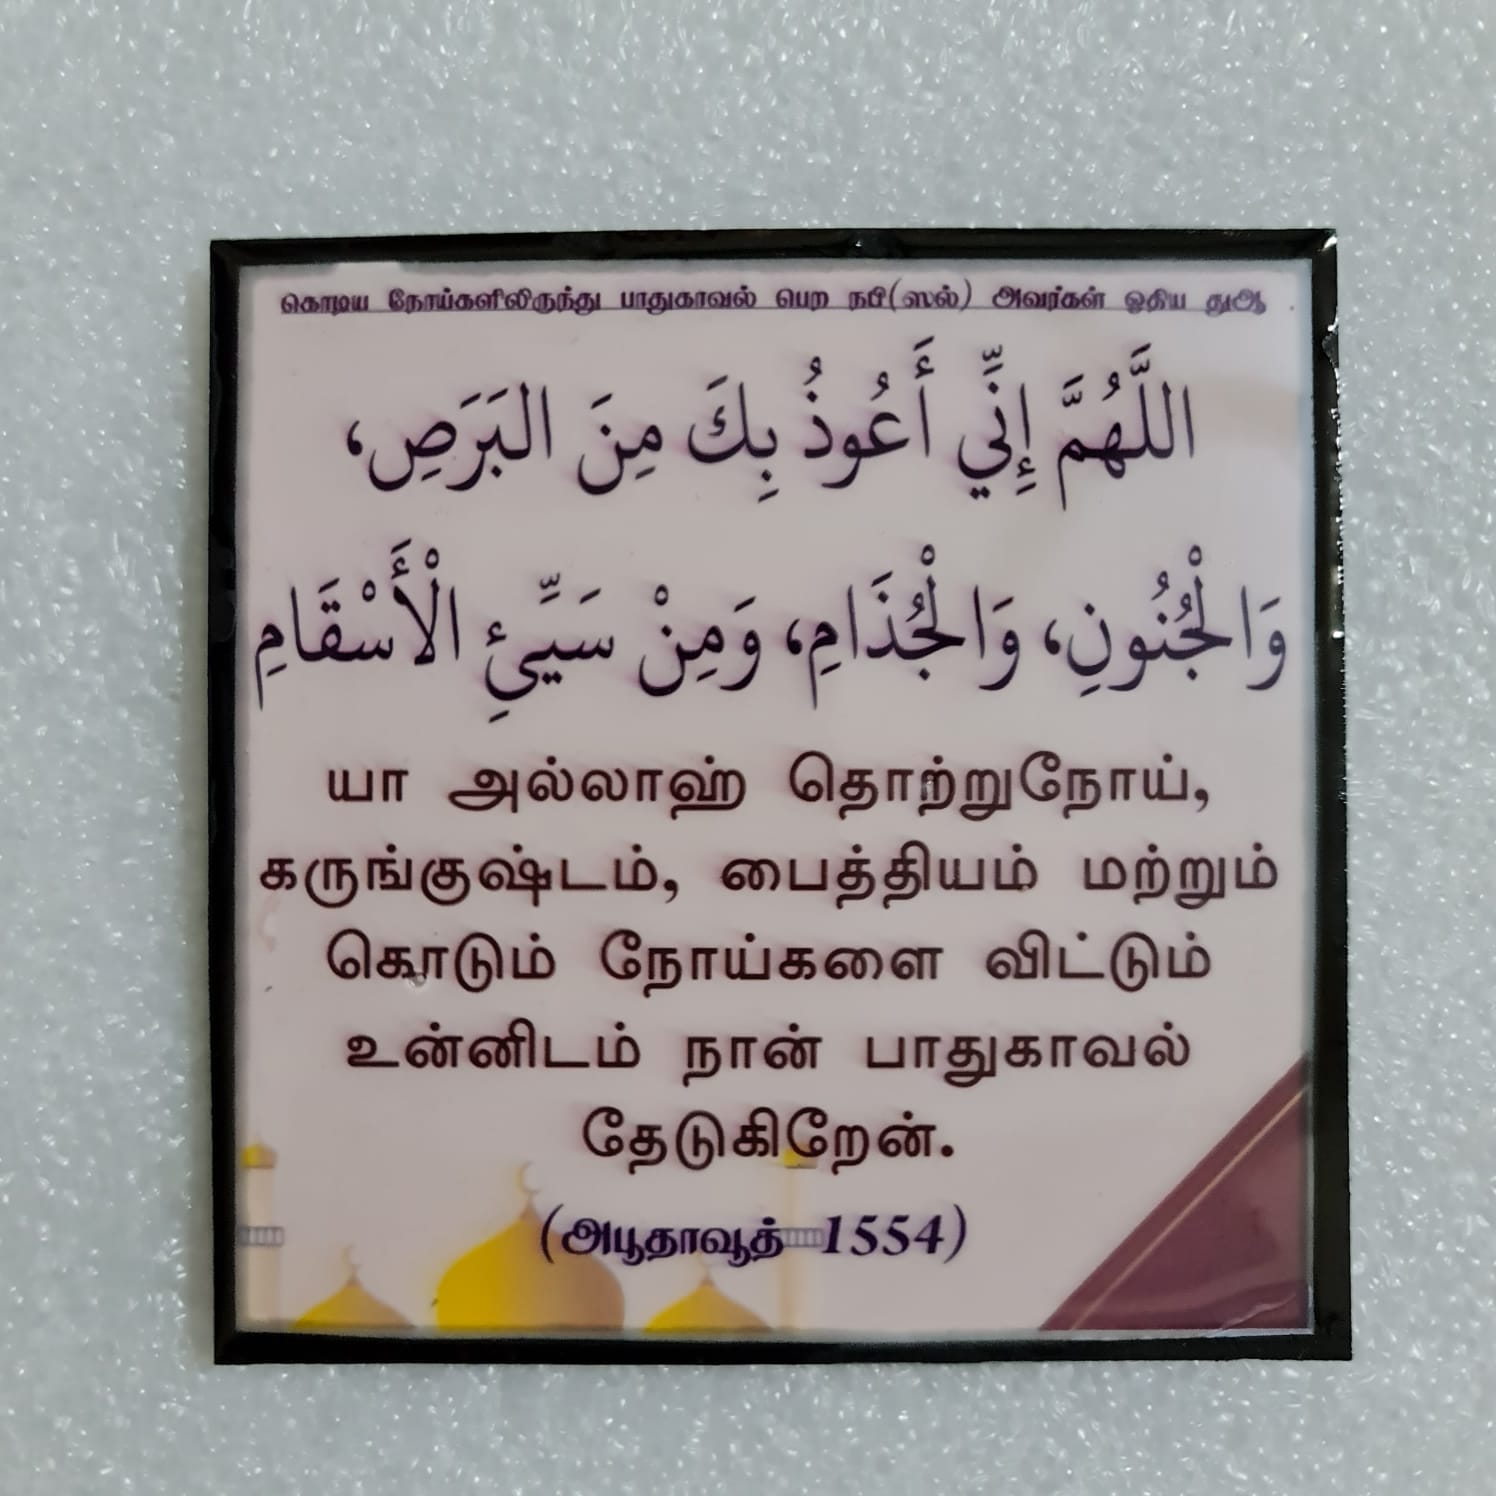 கொடிய நோய்களிலிருந்து பாதுகாவல் பெற நபி(ஸல்) அவர்கள் ஓதிய துஆ
اللَّهُمَّ إِنِّي أَعُوذُ بِكَ مِنَ البَرَصِ،
وَالْجُنُونِ، وَالْجُذَامِ، وَمِنْ سَيِّئِ الْأَسْقَامِ
யா அல்லாஹ் தொற்றுநோய்,
கருங்குஷ்டம், பைத்தியம் மற்றும்
கொடும் நோய்களை விட்டும்
உன்னிடம் நான் பாதுகாவல்
தேடுகிறேன்.
(அபூதாவூத் 1554)